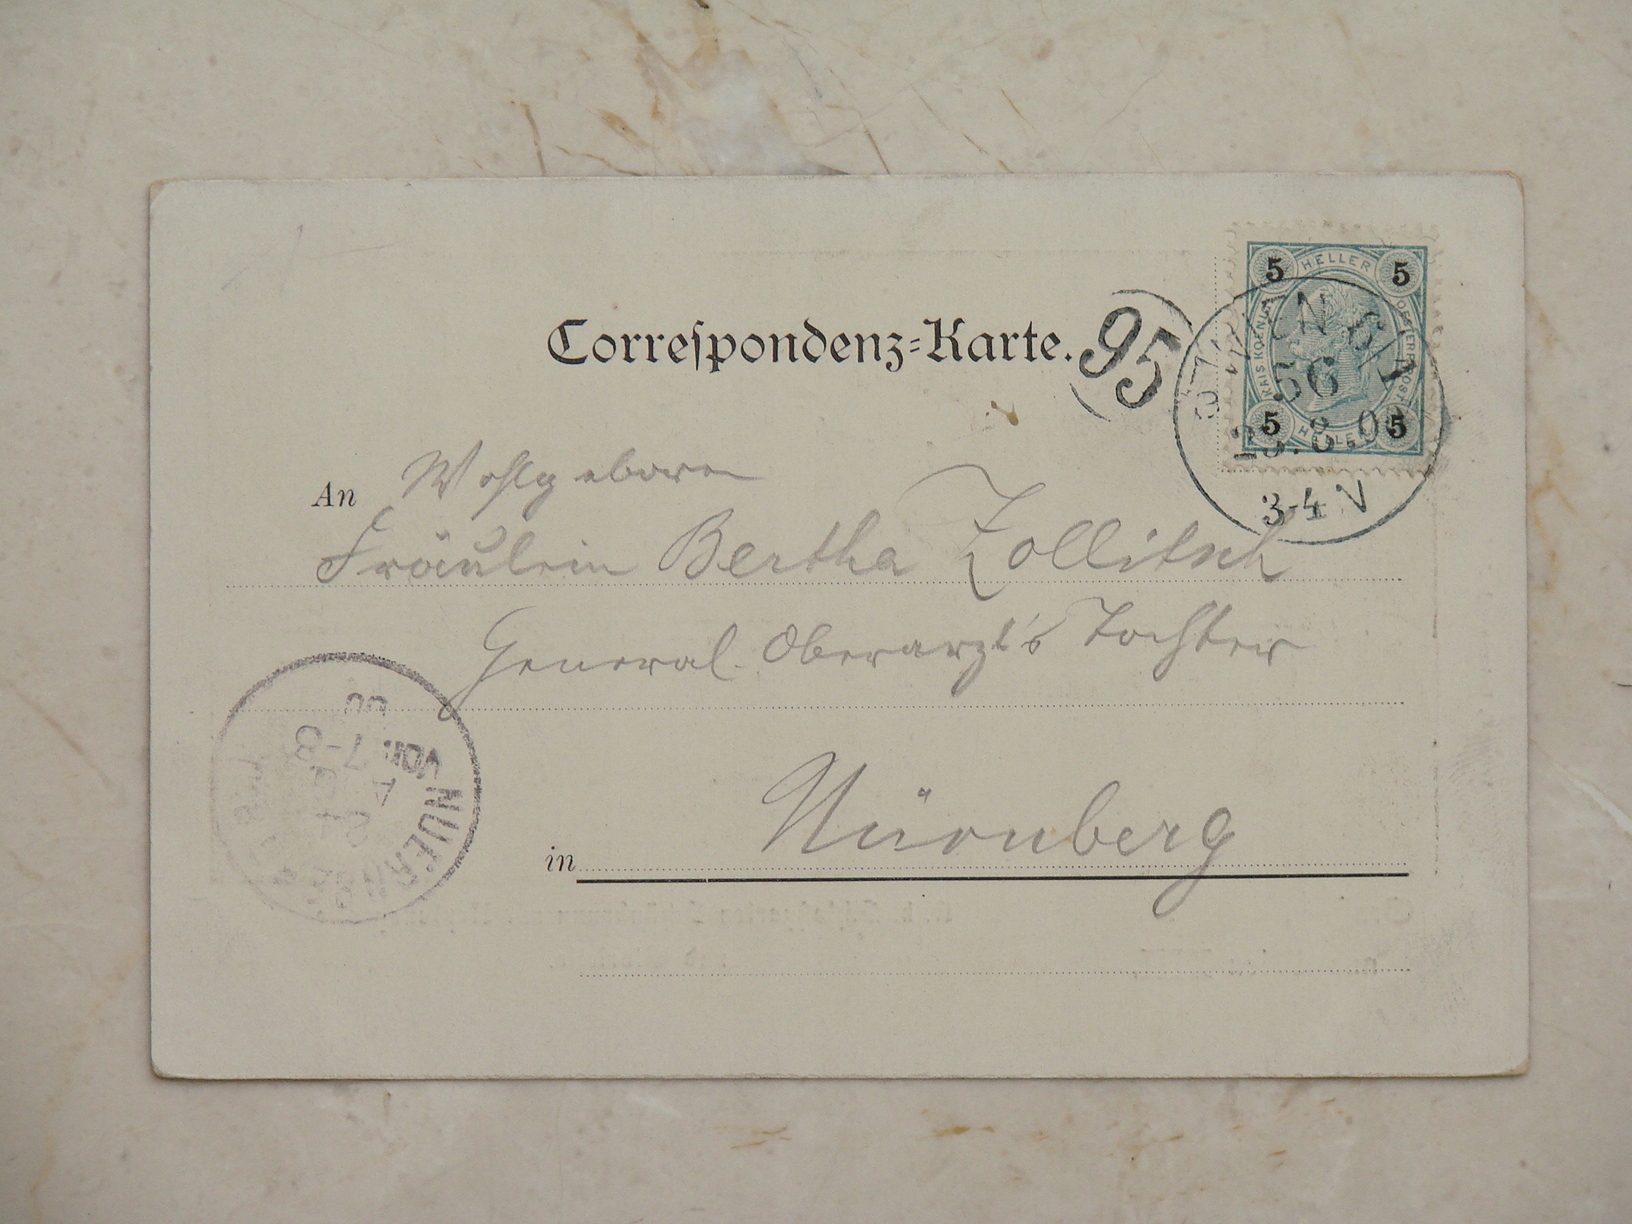 5 HELLER 5
KAIS KOENIGL OESTERR POST
5 HELLER 5
Correspondenz-Karte.
95
WIEN
56
23. 8. 0
3-4 V
An Wohlgeboren
Fräulein Bertha Zollitsch
General-Oberarzt's Tochter
NUERNBERG
VOR. 7-8
00
in Nürnberg